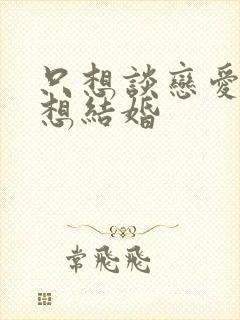 只想談戀愛
想結婚
常飛飛